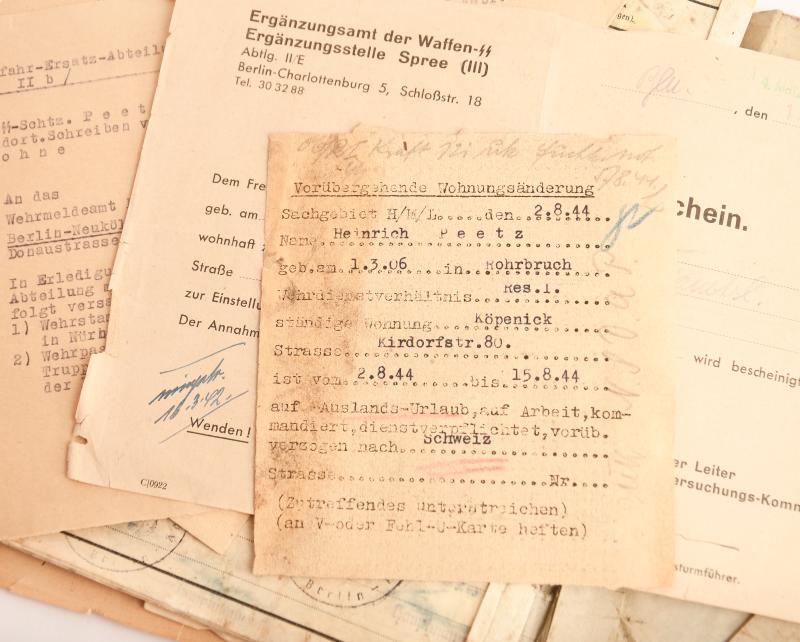 fahr-Ersatz-Abteil
II b
ϟϟ-Schtz. P e e t
dort.Schreiben v
o h n e
An das
Wehrmeldeamt
Berlin-Neuköl
Donaustrasse
In Erledigu
Abteilung
folgt vers
1) Wehrsta
in Nürn
2) Wehrpas
Trupp
der
Ergänzungsamt der Waffen-ϟϟ
Ergänzungsstelle Spree (III)
Abtlg. II/E
Berlin-Charlottenburg 5, Schloßstr. 18
Tel. 30 32 88
Dem Fre
geb. am
wohnhaft
Straße
zur Einstellu
Der Annahm
16.3.42
Wenden!
C/0922
Vorübergehende Wohnungsänderung
Sachgebiet H/M/L.....den. 2.8.44
Name Heinrich P e e t z
geb.am. 1.3.06 in. Rohrbruch
Wehrdienstverhältnis Res.I.
ständige Wohnung Köpenick
Strasse Kirdorfstr.80.
ist vom 2.8.44 bis 15.8.44
auf Auslands-Urlaub,auf Arbeit,kom-
mandiert,dienstverpflichtet,vorüb.
verzogen nach Schweiz
Strasse Nr.
(Zutreffendes unterstreichen)
(an V-oder Fehl-U-Karte heften)
, den
chein.
wird bescheinigt
er Leiter
ersuchungs-Komm
sturmführer.
Berlin